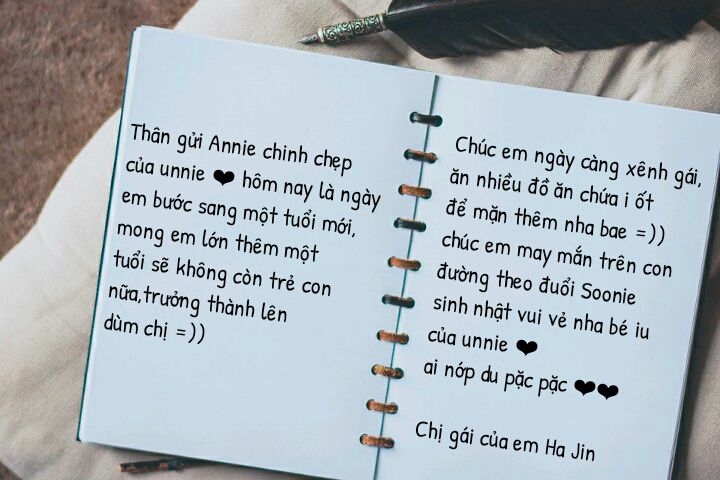 Thân gửi Annie chinh chẹp
của unnie ❤ hôm nay là ngày
em bước sang một tuổi mới,
mong em lớn thêm một
tuổi sẽ không còn trẻ con
nữa,trưởng thành lên
dùm chị =))
Chúc em ngày càng xênh gái,
ăn nhiều đồ ăn chứa i ốt
để mặn thêm nha bae =))
chúc em may mắn trên con
đường theo đuổi Soonie
sinh nhật vui vẻ nha bé iu
của unnie ❤
ai nớp du pặc pặc ❤❤
Chị gái của em Ha Jin